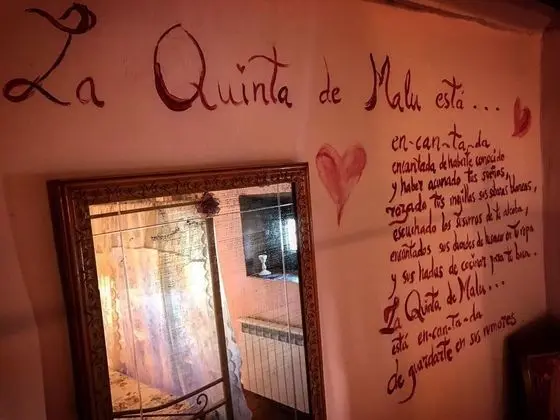 La Quinta de Malu está ...
en-can-ta-da,
encantada de haberte conocido
y haber acunado tus sueños,
rozado tus mejillas sus sábanas blancas,
escuchado los susurros de tu alcoba,
encantados sus duendes de en tu ropa
y sus hadas de cocinar para tu bien.
La Quinta de Malu...
está en-can-ta-da
de guardarte en sus rumores